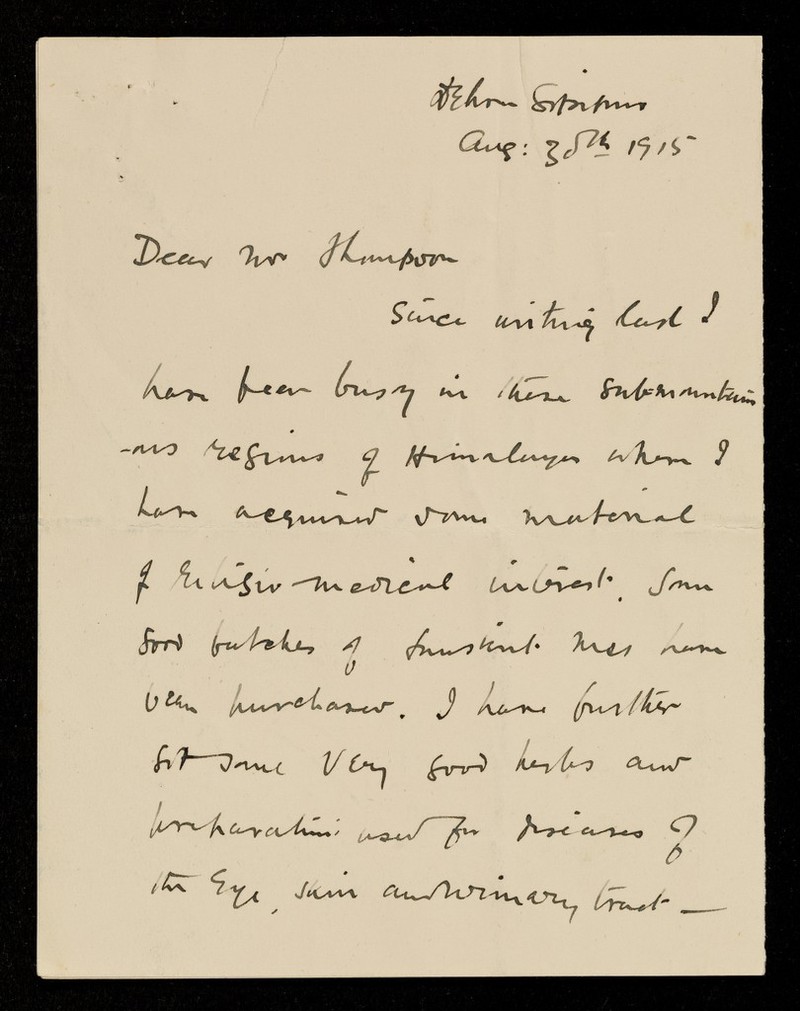 Aug: 30th 1915
Dear Mr Thompson
Since writing last I
have been busy in these sub-mountain
-ous regions of Himalayas where I
have acquired some material
of religio-medical interest. Some
good batches of Sanskrit Mss have
been purchased. I have further
got some very good herbs and
preparations used for diseases of
the Eye, skin and urinary tract —